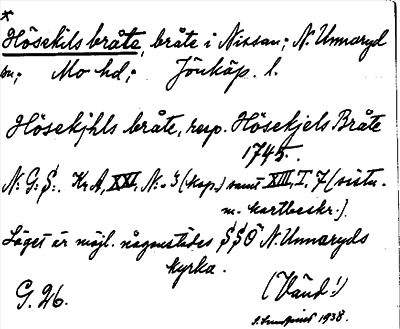 *
Hösekils bråte, bråte i Nissan; N. Unnaryd
sn; Mo hd; Jönköp. l.
Hösekjhls bråte, resp. Hösekjels Bråte
1745.
N: G: S:. Kr A, XXV, N:o 3 (kop.) samt XIII, I. 7 (sistn.
m. kartbeskr.).
Läget är möjl. någonstädes SSÖ N. Unnaryds
kyrka.
G. 26. (Vänd!)
1938.